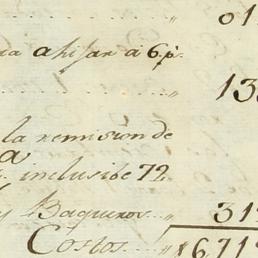 01
a 6 p.
13
la remision de
inclusibe 72
y Baqueros 31
Costos 671